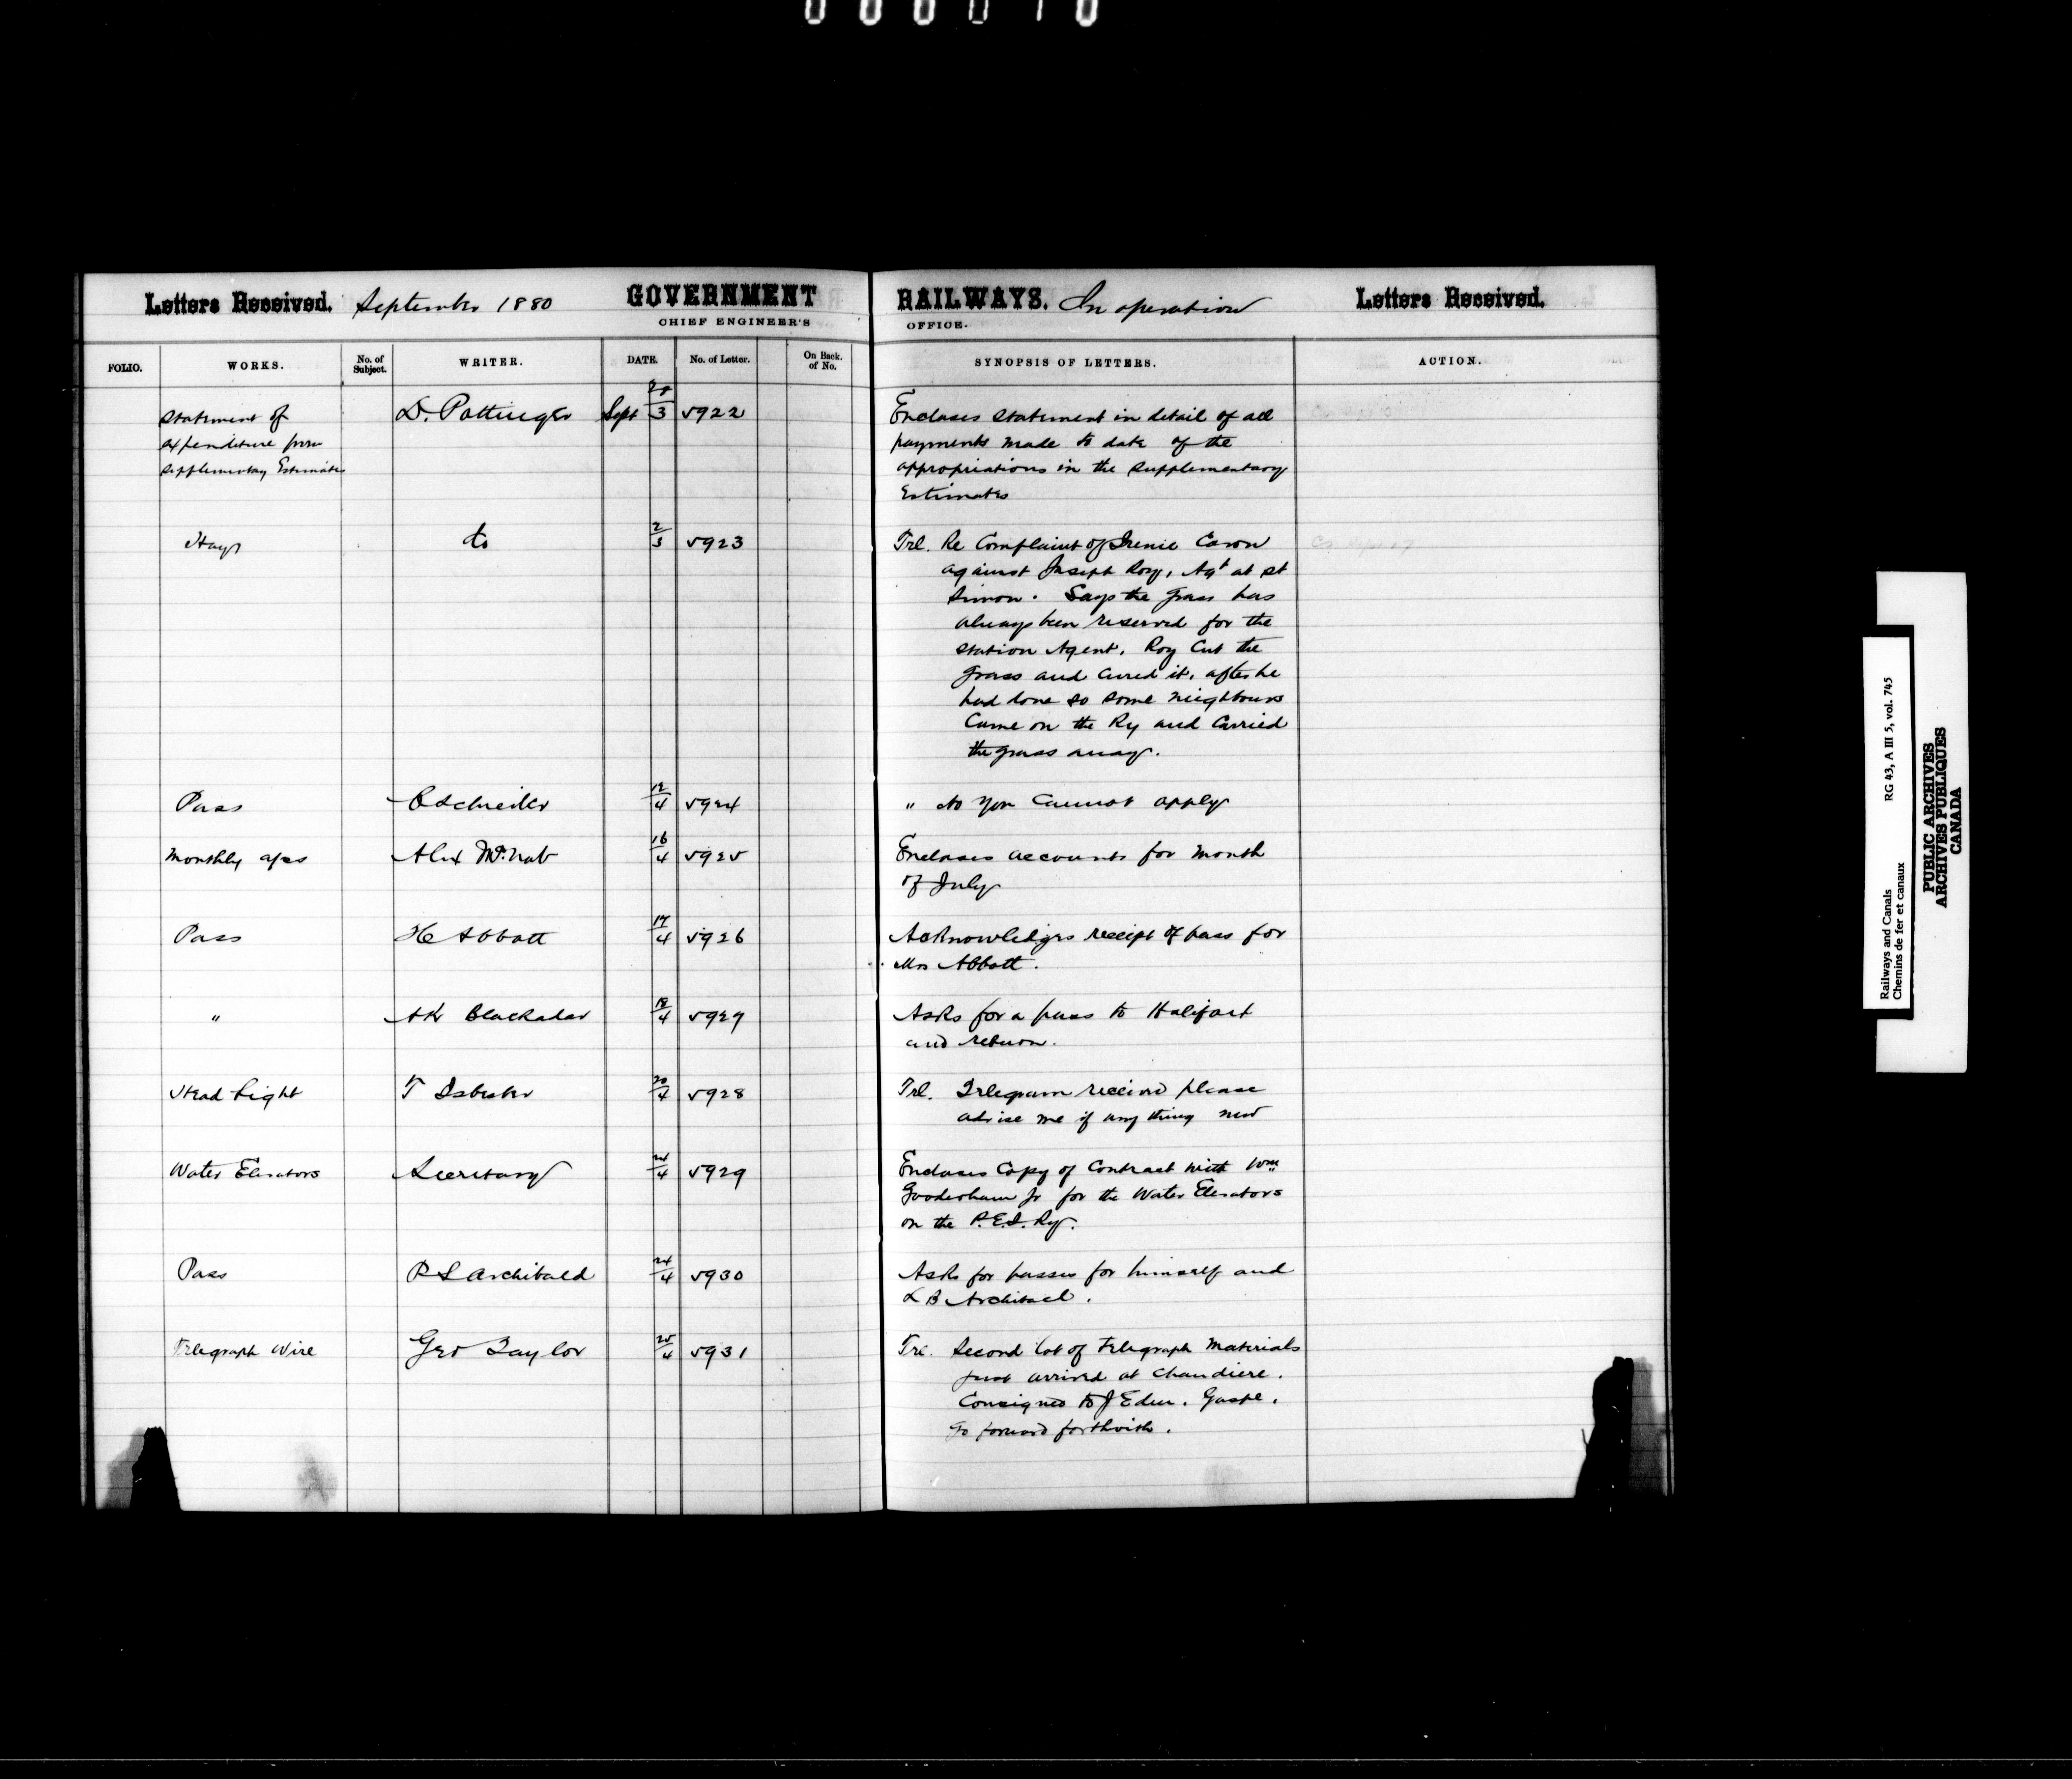 Letters Received. September 1880 GOVERNMENT RAILWAYS. In operation Letters Received.
CHIEF ENGINEER'S OFFICE.
FOLIO. WORKS. No. of Subject. WRITER. DATE. No. of Letter. On Back. of No. SYNOPSIS OF LETTERS. ACTION.
Statement of D. Pottinger Sept 3 5922 Encloses statement in detail of all
expenditure from payments made to date of the
Supplementary Estimates appropriations in the supplementary
Estimates
Hay do 2/3 5923 Tel. Re Complaint of Irenie Caron
against Joseph Roy, Agt at St
Simon. Says the grass has
always been reserved for the
station Agent. Roy Cut the
grass and cured it, after he
had done so some neighbours
Came on the Ry and Carried
the grass away.
Pass C Schreiber 12/4 5924 " to you cannot apply
Monthly a/cs Alex McNab 16/4 5925 Encloses accounts for month
of July
Pass H Abbott 17/4 5926 Acknowledges receipt of pass for
Mrs Abbott.
" AK Blackadar 18/4 5927 Asks for a pass to Halifax
and return.
Head Light T Isbester 20/4 5928 Tel. Telegram received please
advise me if any thing new
Water Elevators Secretary 24/4 5929 Encloses Copy of Contract with Wm
Gooderham Jr for the Water Elevators
on the P.E.I. Ry.
Pass P S Archibald 24/4 5930 Asks for passes for himself and
L B Archibald.
Telegraph Wire Geo Taylor 25/4 5931 Tel. Second lot of telegraph Materials
just arrived at Chaudiere.
Consigned to J Eden. Gaspe.
Go forward forthwith.
Railways and Canals RG 43, A III 5, vol. 745
Chemins de fer et canaux
PUBLIC ARCHIVES
ARCHIVES PUBLIQUES
CANADA